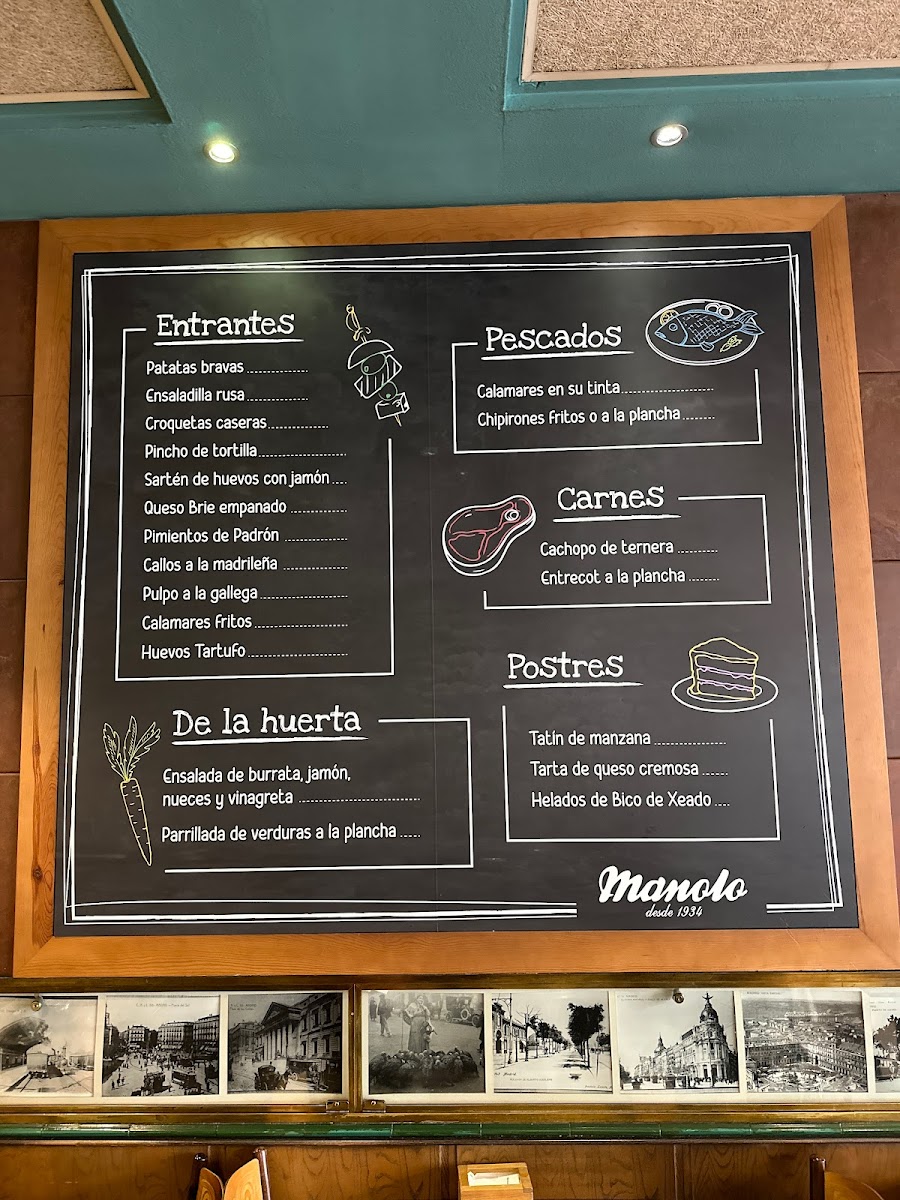 Entrantes
Patatas bravas
Ensaladilla rusa
Croquetas caseras
Pincho de tortilla
Sartén de huevos con jamón
Queso Brie empanado
Pimientos de Padrón
Callos a la madrileña
Pulpo a la gallega
Calamares fritos
Huevos Tartufo
De la huerta
Ensalada de burrata, jamón,
nueces y vinagreta
Parrillada de verduras a la plancha
Pescados
Calamares en su tinta
Chipirones fritos o a la plancha
Carnes
Cachopo de ternera
Entrecot a la plancha
Postres
Tatín de manzana
Tarta de queso cremosa
Helados de Bico de Xeado
Manolo
desde 1934